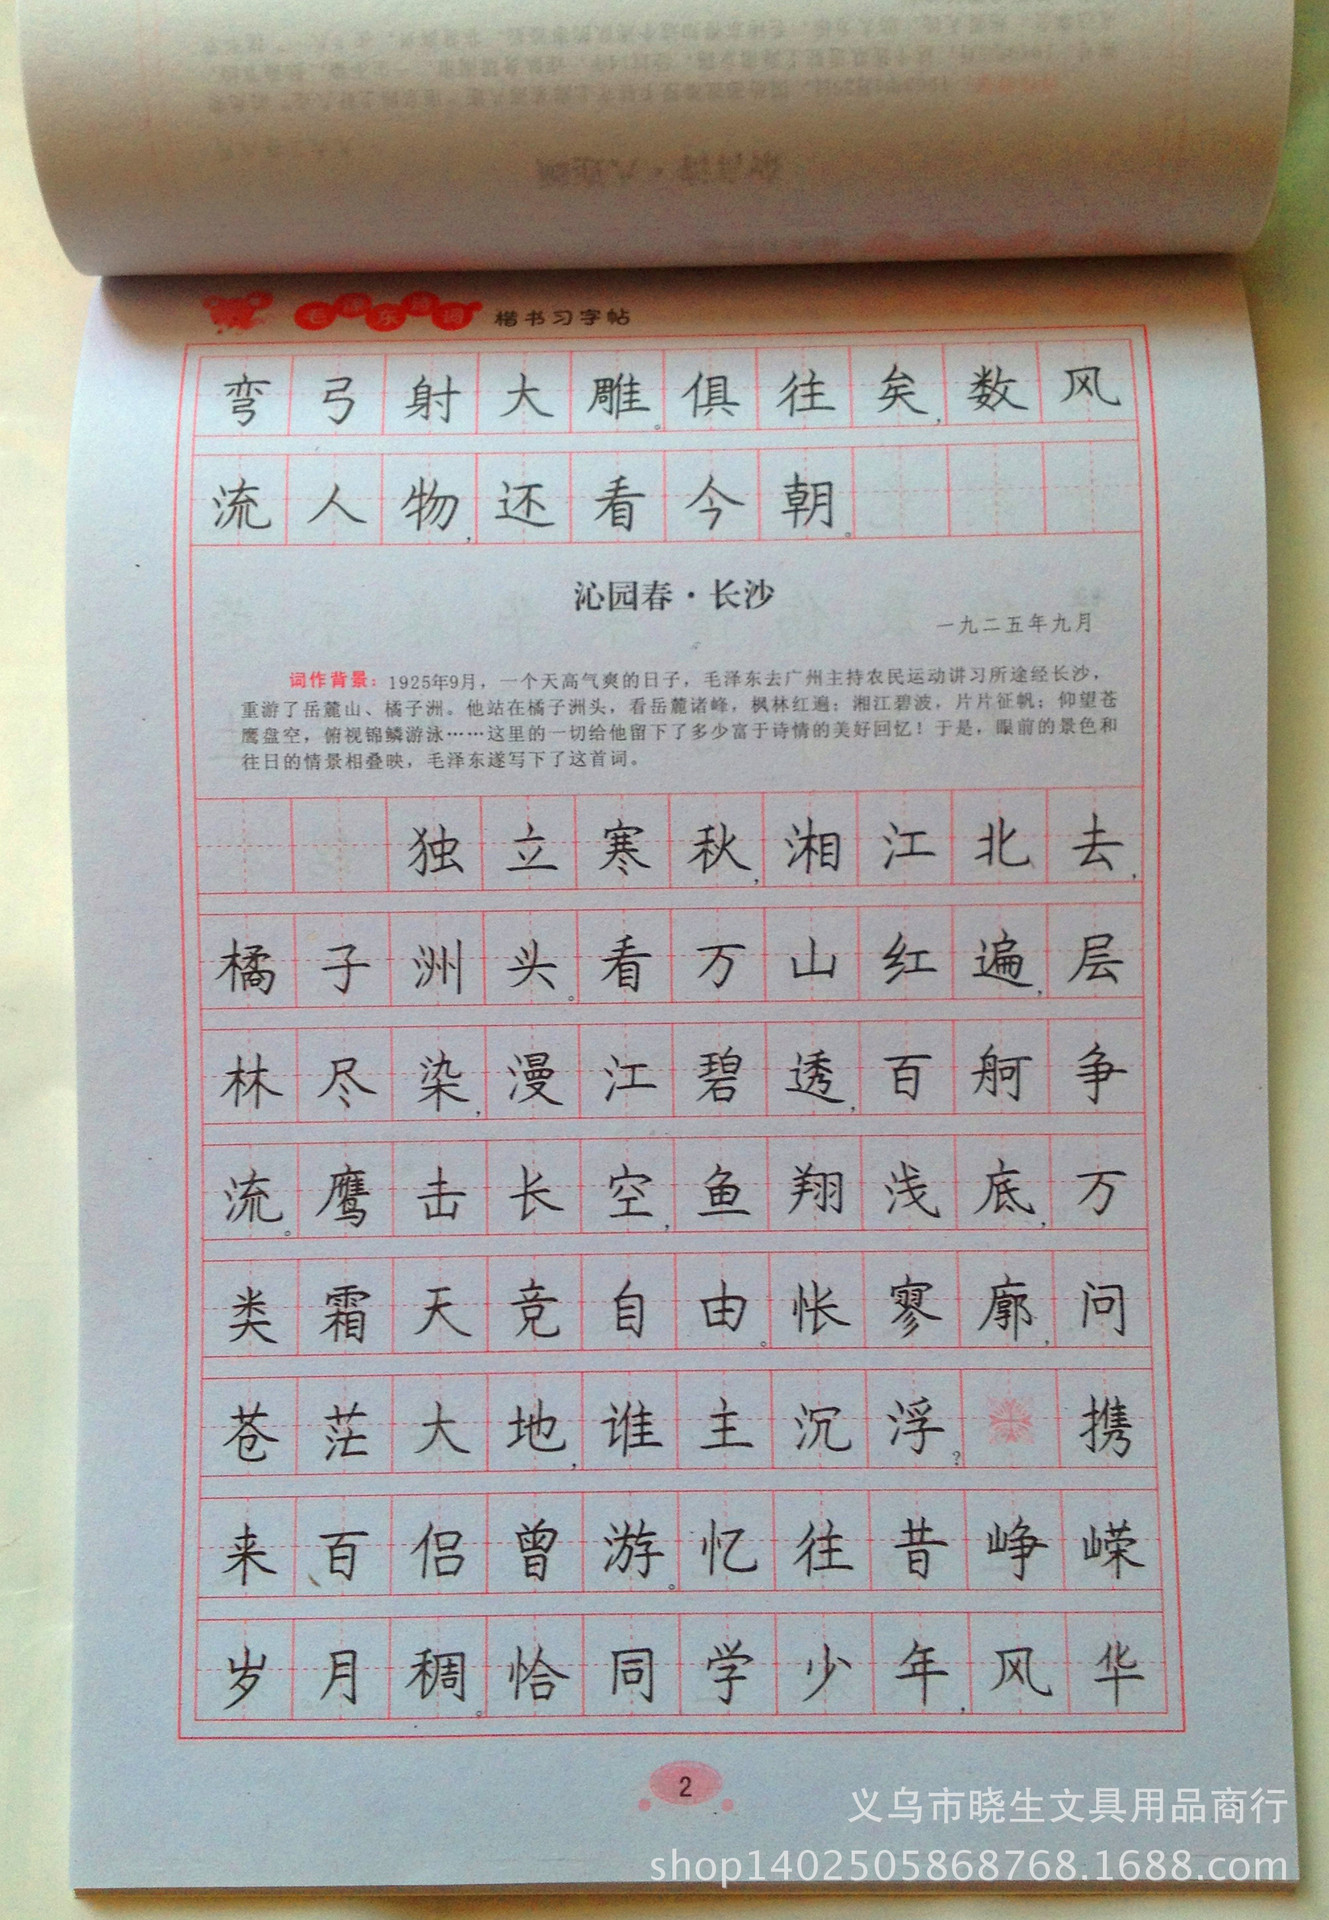 毛泽东诗词 楷书习字帖
弯弓射大雕。俱往矣,数风
流人物,还看今朝。
沁园春·长沙
一九二五年九月
词作背景：1925年9月，一个天高气爽的日子，毛泽东去广州主持农民运动讲习所途经长沙，
重游了岳麓山、橘子洲。他站在橘子洲头，看岳麓诸峰，枫林红遍；湘江碧波，片片征帆；仰望苍
鹰盘空，俯视锦鳞游泳……这里的一切给他留下了多少富于诗情的美好回忆！于是，眼前的景色和
往日的情景相叠映，毛泽东遂写下了这首词。
独立寒秋,湘江北去,
橘子洲头。看万山红遍,层
林尽染,漫江碧透,百舸争
流。鹰击长空,鱼翔浅底,万
类霜天竞自由。怅寥廓,问
苍茫大地,谁主沉浮?携
来百侣曾游。忆往昔峥嵘
岁月稠。恰同学少年,风华
2
义乌市晓生文具用品商行
shop1402505868768.1688.com